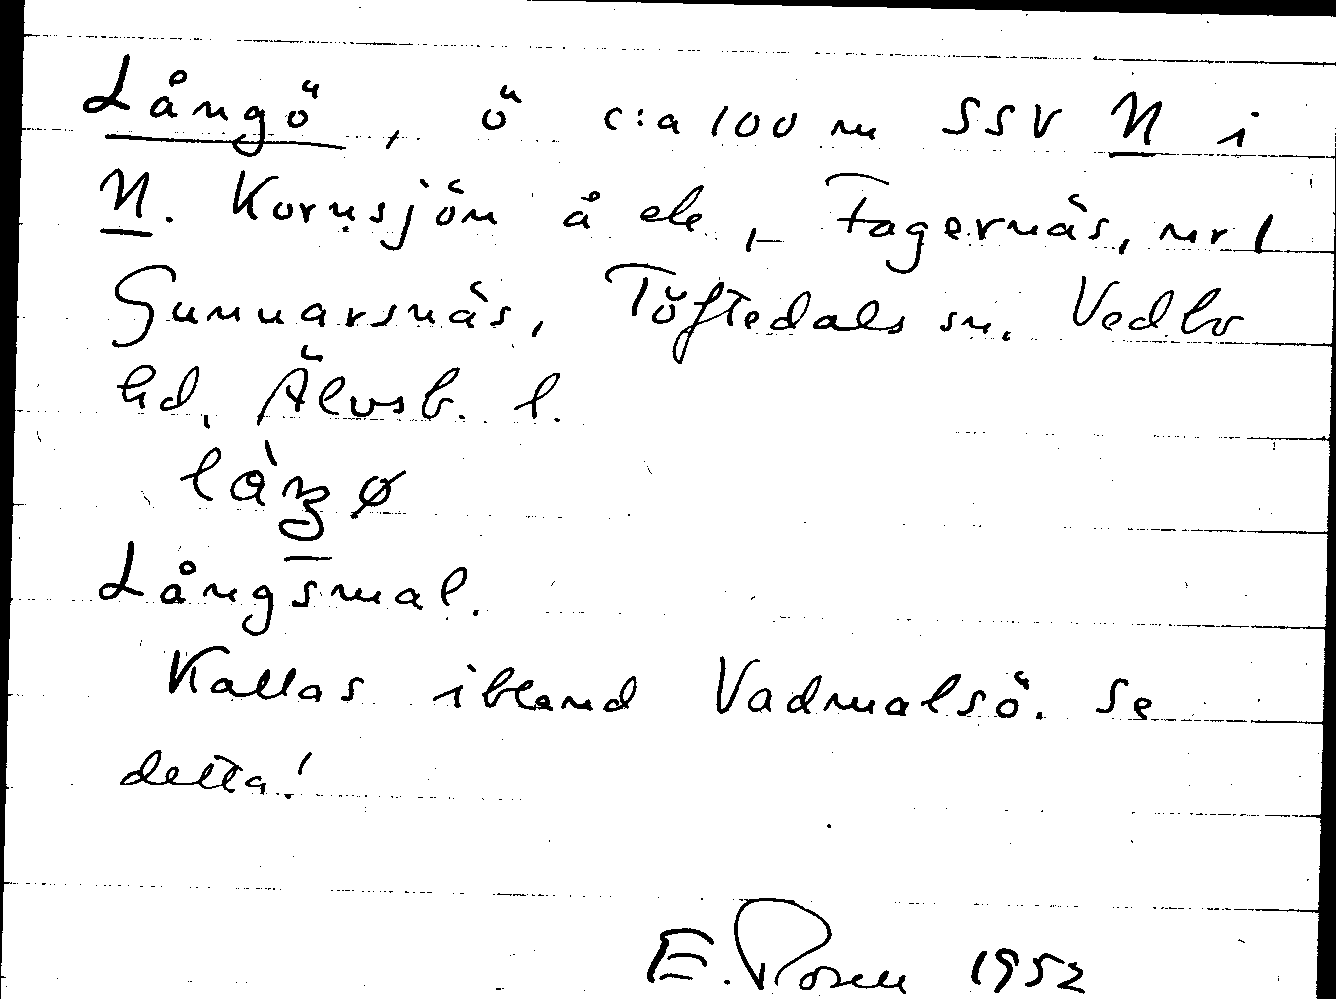 Långö, ö c:a 100 m SSV N i
N. Kornsjön å ek, Fagernäs, nr 1
Gunnarsnäs, Töftedals sn. Vedbo
hd, Älvsb. l.
Långsmal.
Kallas ibland Vadmalsö. Se
detta!
E. Rosell 1952